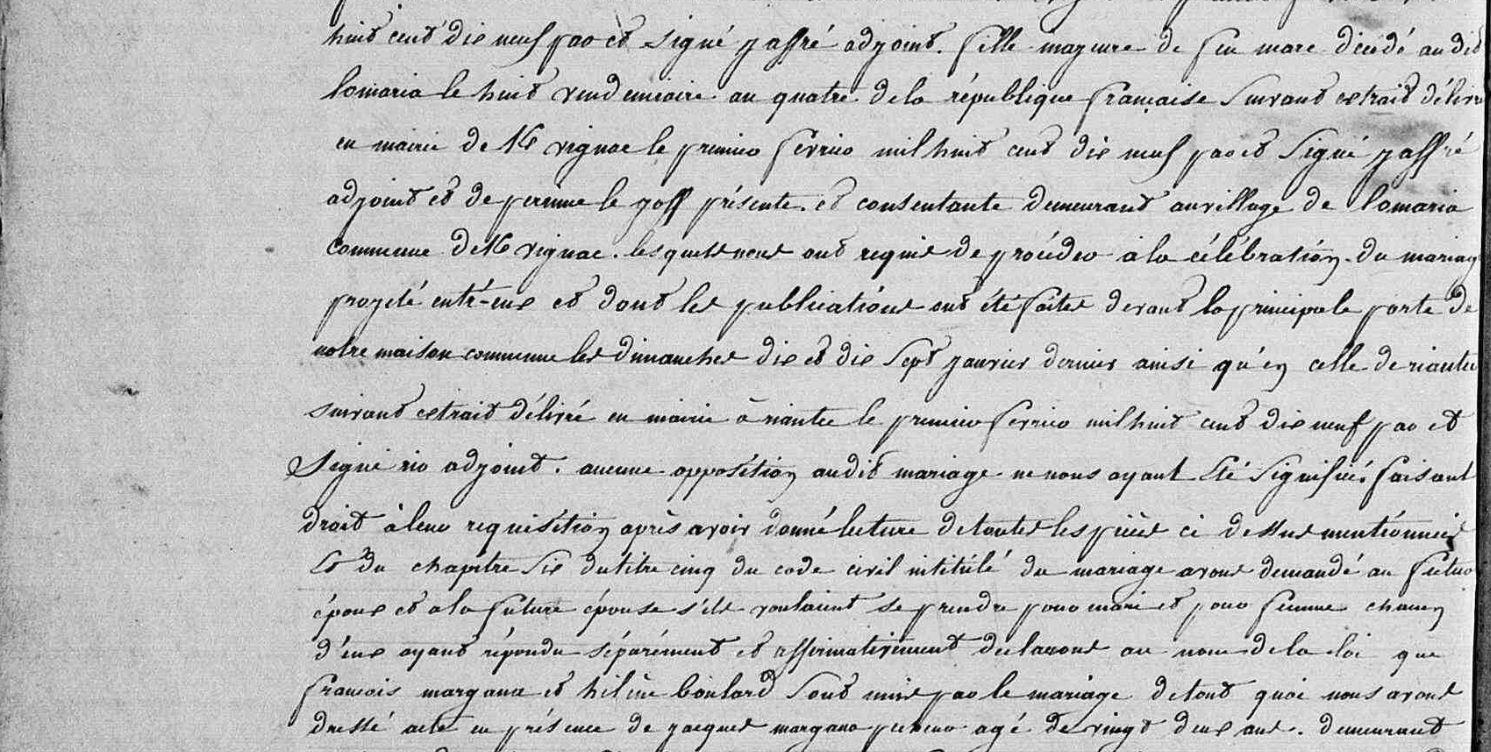 huit cent dix neuf par et signé jaffré adjoint. fille majeure de feu marc décédé au dit
lomaria le huit vendemiaire an quatre de la république française suivant extrait délivré
en mairie de Kvignac le premier fevrier mil huit cent dix neuf par et signé jaffré
adjoint et de perinne le goff présente. et consentante demeurant au village de lomaria
commune de Kvignac. lesquels nous ont requis de procéder à la célébration du mariage
projeté entr-eux et dont les publications ont été faites devant la principale porte de
notre maison commune les dimanches dix et dix sept janvier dernier ainsi qu'en celle de riantec
suivant extrait délivré en mairie à riantec le premier fevrier mil huit cent dix neuf par et
signé rio adjoint. aucune opposition audit mariage ne nous ayant été signifiée faisant
droit à leur requisition après avoir donné lecture de toutes les pièces ci dessus mentionnées
et du chapitre six du titre cinq du code civil intitulé du mariage avons demandé au futur
époux et a la future épouse s'ils voulaient se prendre pour mari et pour femme chacun
d'eux ayant répondu séparément et affirmativement declarons au nom de la loi que
francois margana et hélène boulard sont unis par le mariage de tout quoi nous avons
dressé acte en présence de jacques margano agé de vingt deux ans. demeurant